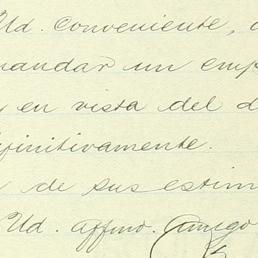 Ud. conveniente,
mandar un emp
en vista del d
finitivamente.
de sus estim
Ud. affmo. Amigo